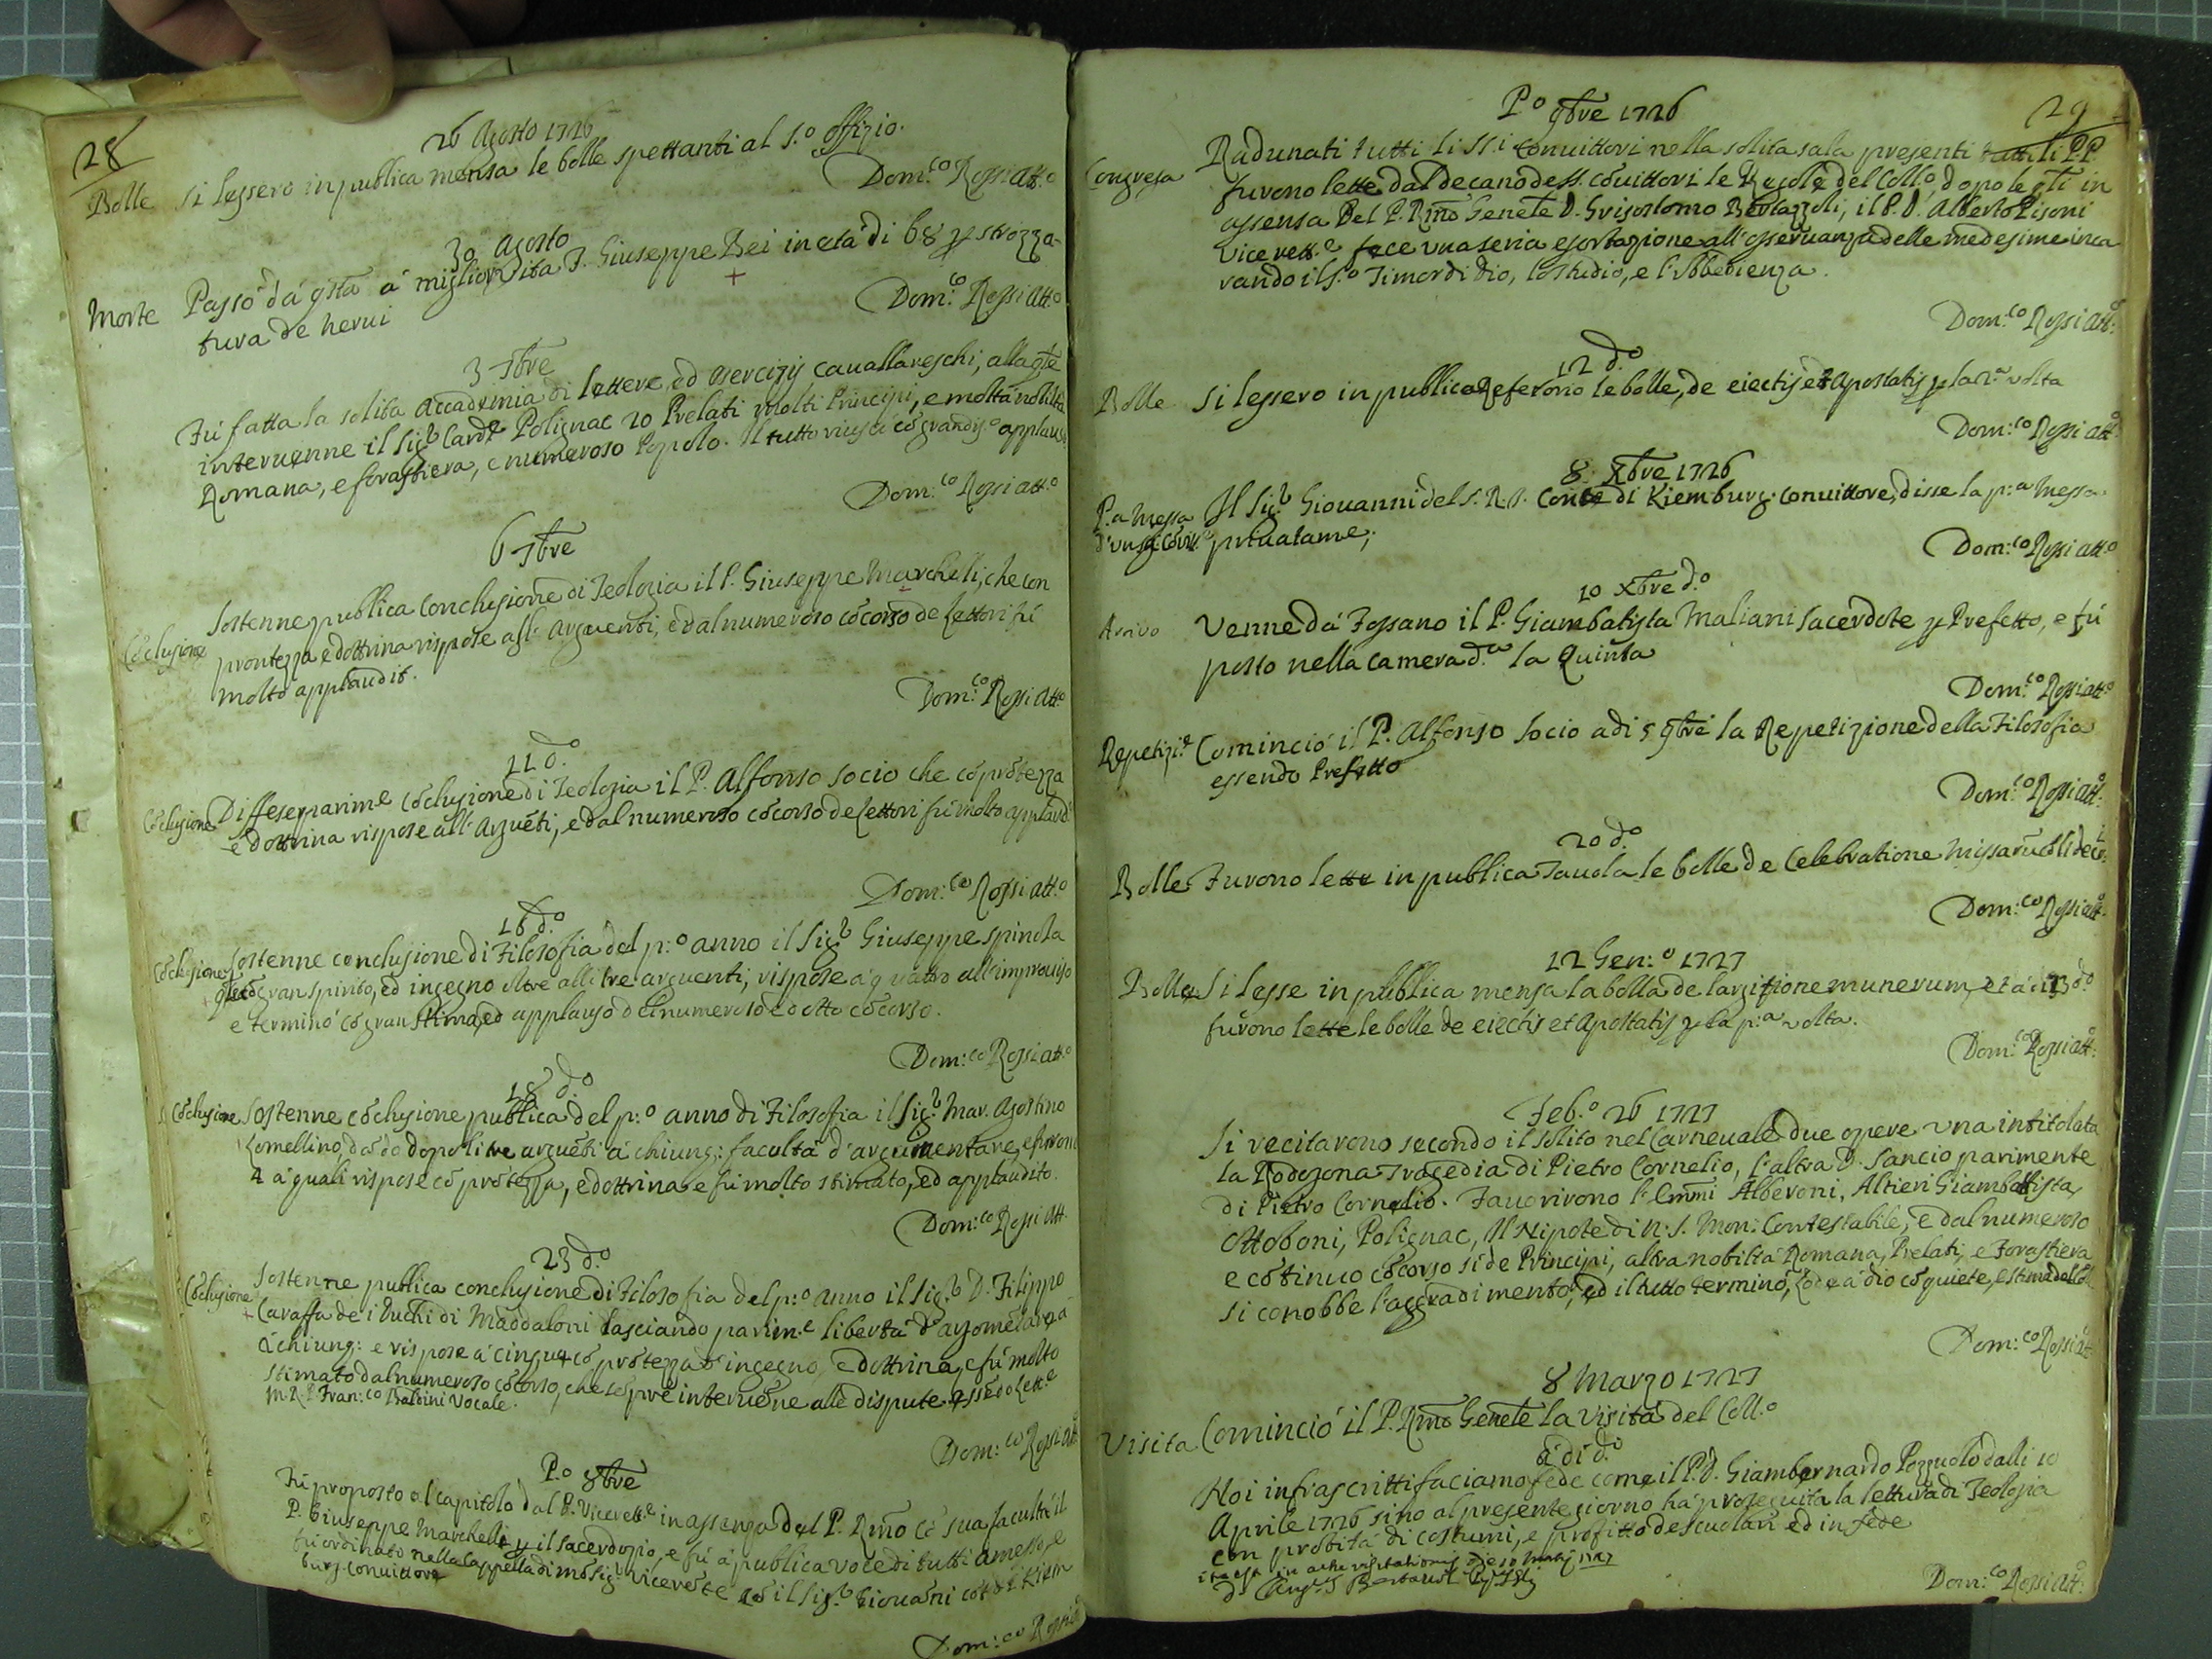 28
26 Agosto 1726
Bolle Si lessero in publica mensa le bolle spettanti al S.o offizio.
Dom:co Rossi att:o
30 Agosto
Morte Passò da qsta à miglior vita F. Giuseppe Bei in età di 68 p strozza-
tura de nervi
Dom:co Rossi att:o
3 7bre
Fù fatta la solita Accademia di lettere ed esercizij cavallareschi, alla qle
intervenne il Sigr Cardle Polignac 20 Prelati molti Principi, e molta nobiltà
Romana, e forastiera, e numeroso Popolo. Il tutto riuscì cõ grandis.o applauso
Dom:co Rossi att:o
6 7bre
Sostenne publica Conclusione di Teologia il P. Giuseppe Marchelli, che con
Cõclusione prontezza e dottrina rispose all' Arguenti, e dal numeroso cõcorso de Lettori fù
molto applaudit.
Dom:co Rossi att:o
11 d.o
Cõclusione Diffese parime Cõclusione di Teologia il P. Alfonso Socio che cõ prõtezza
e dottrina rispose all' Arguẽti, e dal numeroso cõcorso de Lettori fù molto applaud.
Dom:co Rossi att:o
16 d.o
Cõclusione Sostenne conclusione di Filosofia del p:o anno il Sigr Giuseppe Spinola
qle cõ gran spirito, ed ingegno oltre alli tre arguenti, rispose a' quattro all' improviso
e terminò cõ gran stima, ed applauso del numeroso e dotto cõcorso.
Dom:co Rossi att:o
18 d.o
Cõclusione Sostenne cõclusione publica del p:o anno di Filosofia il Sigr Mar. Agostino
Lomellino, dãdo dopo li tre arguẽti à chiunq: facoltà d'argumentare, e furono
4 à quali rispose cõ prõtezza, e dottrina e fù molto stimato, ed applaudito.
Dom:co Rossi att
23 d.o
Cõclusione Sostenne publica conclusione di Filosofia del p:o anno il Sigr D. Filippo
Caraffa de i Duchi di Maddaloni lasciando parim.e libertà d'argomẽtare
à chiunq: e rispose à cinque cõ prõtezza d'ingegno, e dottrina, e fù molto
stimato dal numeroso cõcorso, che sẽpre intervẽne alle dispute essẽdo Lett.e
M.R.P. Fran:co Baldini Vocale.
Dom:co Rossi att:
P.o 8bre
Fù proposto al capitolo dal P. Vicerett.e in assenza del P. Rmo cõ sua facoltà il
P. Giuseppe Marchelli p il sacerdozio, e fù à publica voce di tutti amesso, e
fù ordinato nella Cappella di mõsig. Vicegerẽte cõ il Sigr Giovãni cõte di Kiem
burg Convittore
Dom:co Rossi
29
P.o 9bre 1726
Congrega Radunati tutti li SS.i Convittori nella solita sala presenti tutti li P.P.
furono lette dal decano de SS. Cõvittori le Regole del Coll.o, dopo le qli in
assenza del P. Rmo Genele D. Grisostomo Bertazzoli, il P. D. Alberto Pisoni
Vicerett.e fece una seria esortazione all' osservanza delle medesime inca
rando il S.o Timor di Dio, lo studio, e l'Ubbedienza.
Dom:co Rossi att:o
12 d.o
Bolle Si lessero in publico Refetorio le bolle, de eiectis et Apostatis p la 2.a volta
Dom:co Rossi att:o
8 Xbre 1726
P.a Messa Il Sigr Giovanni del S.R.I. Conte di Kiemburg convittore, disse la p:a Messa
d'un Sig. Cõvit.e privatame;
Dom:co Rossi att:o
10 Xbre d.o
Arrivo Venne dà Fossano il P. Giambatista Maliani Sacerdote p Prefetto, e fù
posto nella camera d.a la Quinta
Dom:co Rossi att:o
Repetiz.e Cominciò il P. Alfonso Socio adi 5 9bre la Repetizione della Filosofia
essendo Prefetto
Dom:co Rossi att:o
20 d.o
Bolle Furono lette in publica Tavola le bolle de Celebratione Missarũ
Dom:co Rossi att:o
12 Gen:o 1727
Bolle Si lesse in publica mensa la bolla de largitione munerum, et à di 13 d.o
furono lette le bolle de eiectis et Apostatis p la p:a volta.
Dom:co Rossi att:o
Feb.o 26 1727
Si recitarono secondo il solito nel Carnevale due opere una intitolata
la Rodogona Tragedia di Pietro Cornelio, l'altra D. Sancio parimente
di Pietro Cornelio. Favorirono l'Emmi Alberoni, Altieri Giambattista,
Ottoboni, Polignac, Il Nipote di N.S. Mon: Contestabile, e dal numeroso
e cõtinuo cõcorso sì de Principi, altra nobiltà Romana, Prelati, e Forastiera
si conobbe l'aggradimento, ed il tutto terminò, lode à dio cõ quiete, e stima del
Dom:co Rossi att
8 Marzo 1727
Visita Cominciò il P. Rmo Genele la Visita del Coll.o
à di d.o
Noi infrascritti faciamo fede come il P.D. Giambernardo Pozzuolo dalli 10
Aprile 1726 sino al presente giorno hà proseguita la lettura di Teologia
con probità di costumi, e profitto de scuolari ed in fede
ita est in actu visitationis die 10 Martij 1727
Dom:co Rossi att:o